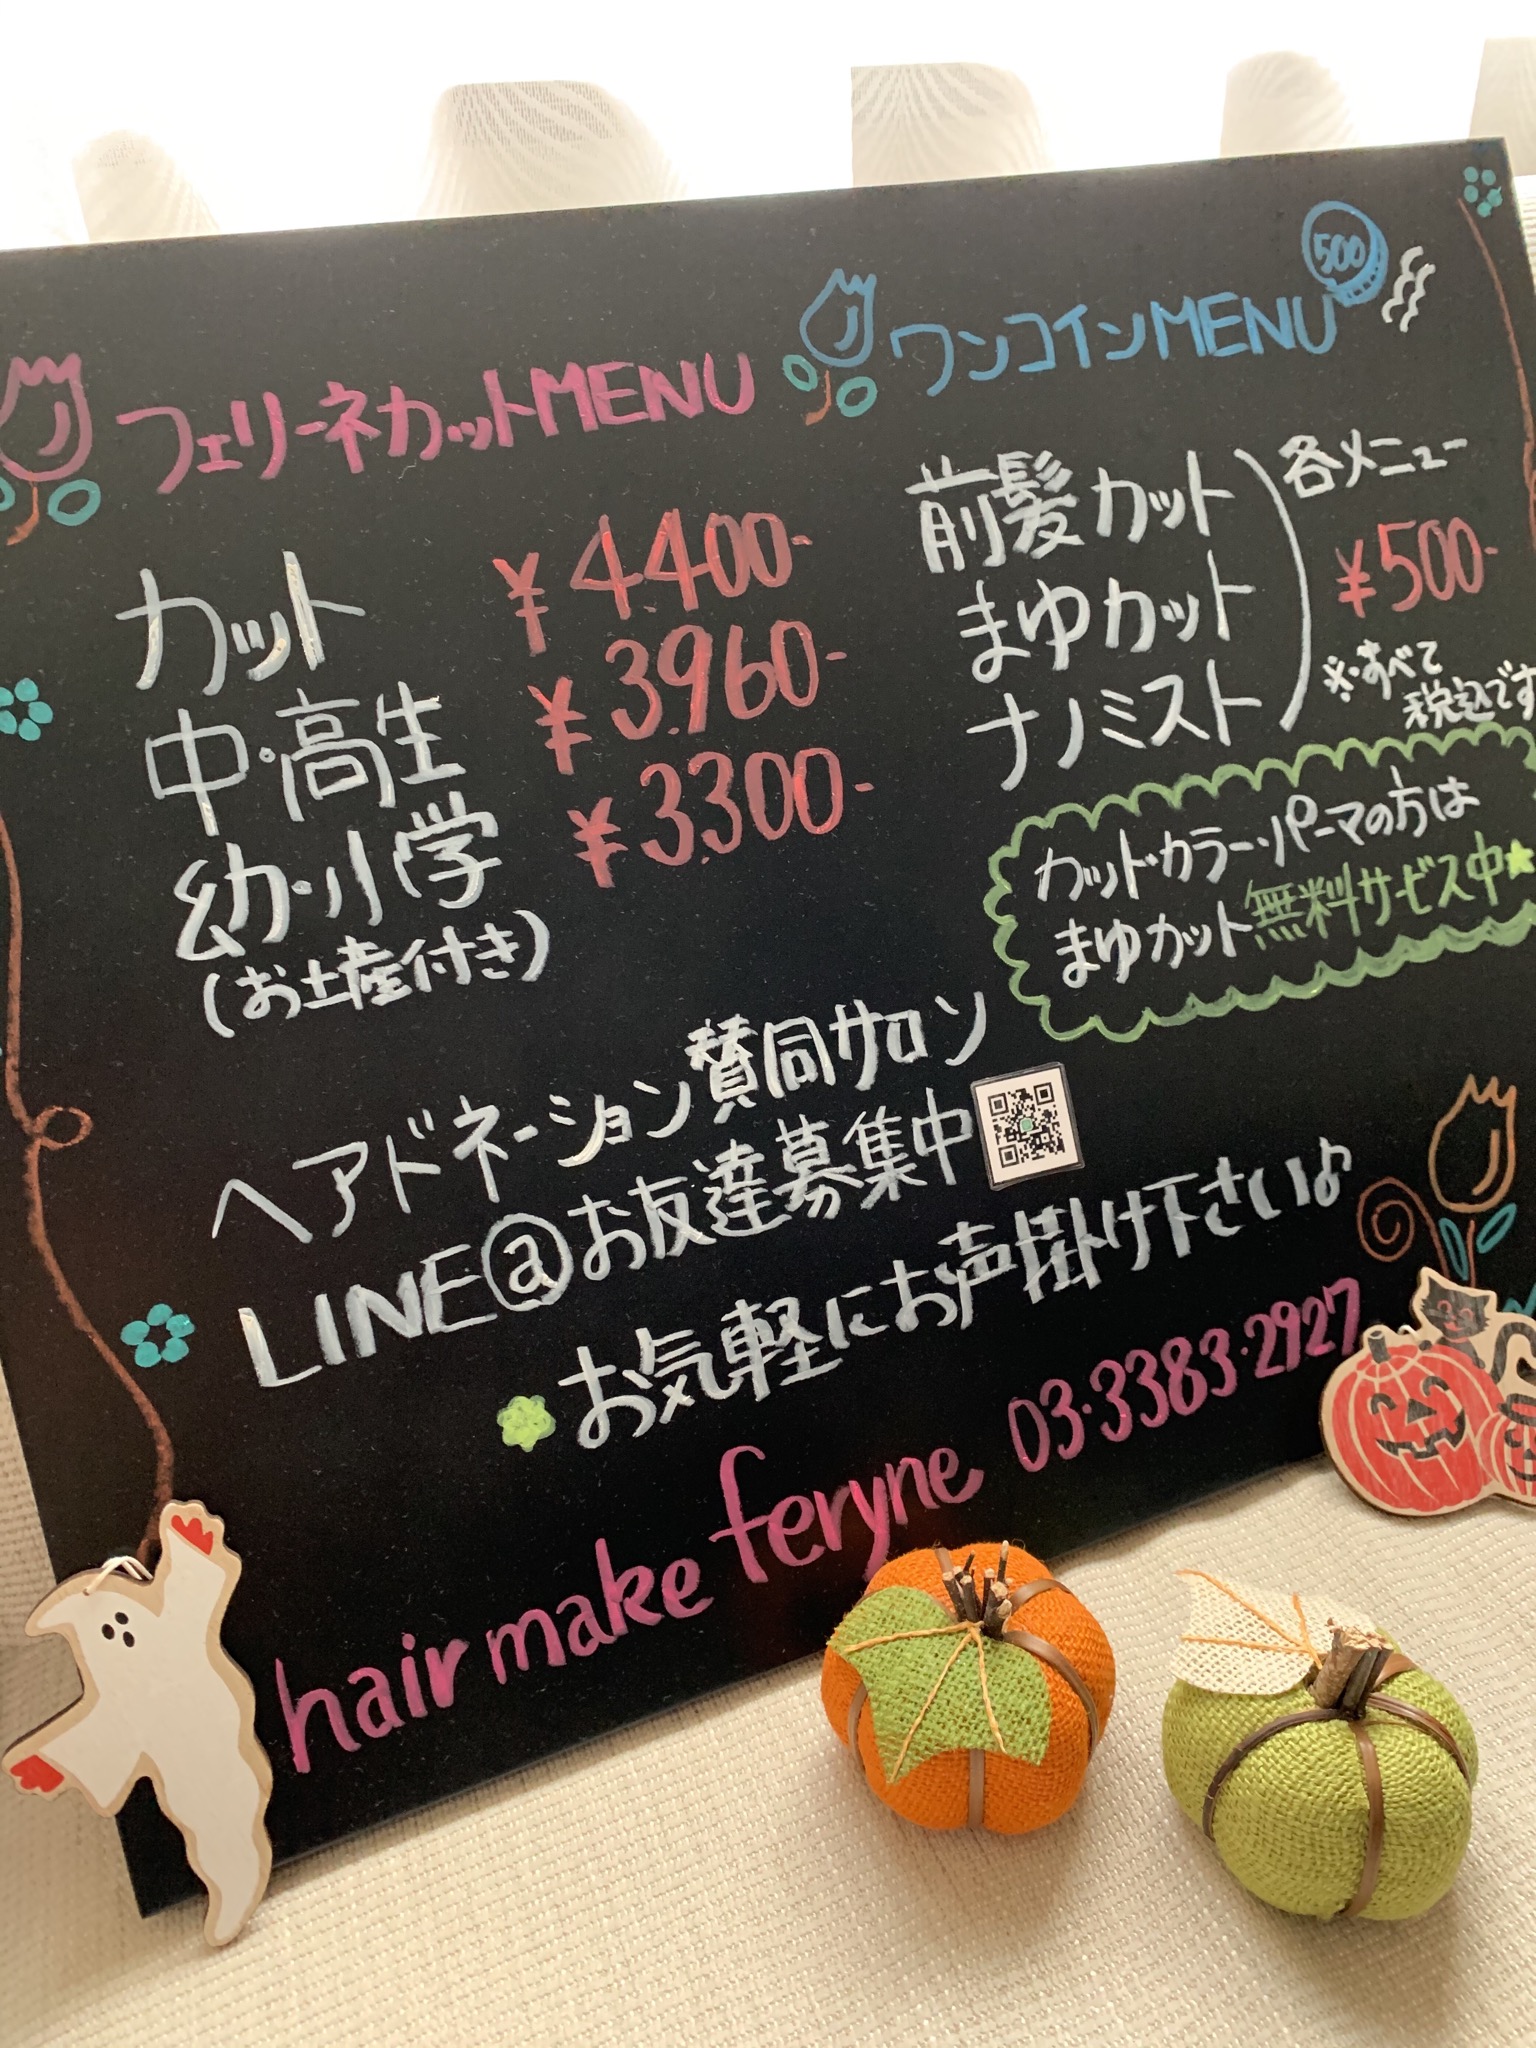 フェリーネカットMENU
カット ¥4400-
中・高生 ¥3960-
幼・小学 ¥3300-
(お土産付き)
ワンコインMENU
500
前髪カット
まゆカット
ナノミスト
各メニュー
¥500-
※すべて
税込です
カット・カラー・パーマの方は
まゆカット無料サービス中★
ヘアドネーション賛同サロン
LINE@お友達募集中
お気軽にお声掛け下さい♪
hair make feryne 03・3383・2927